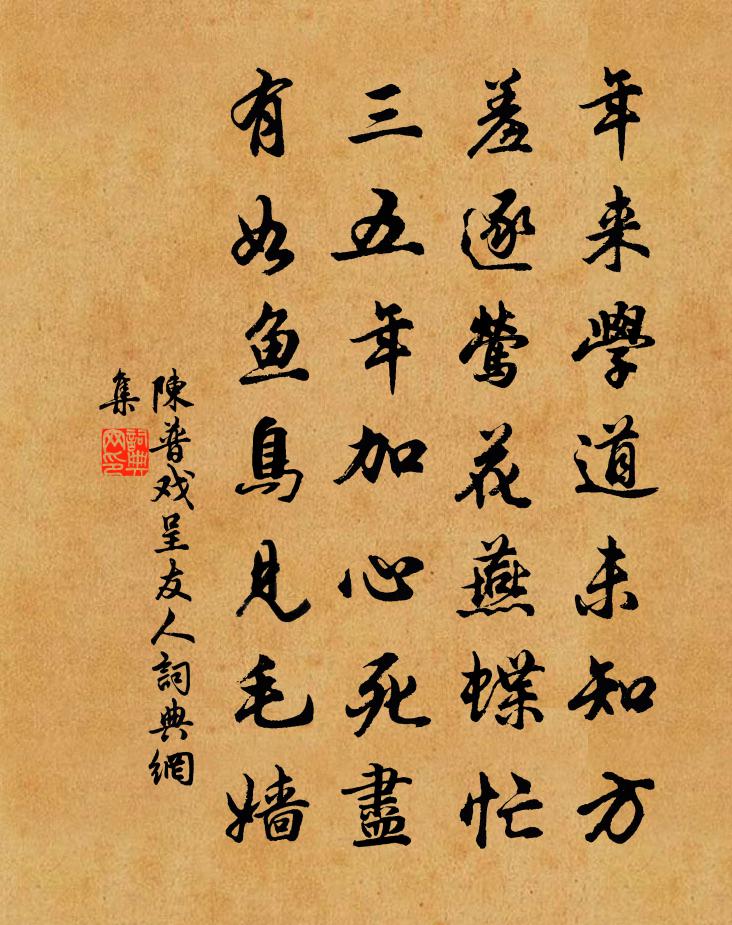 年来學道未知方
羞逐鶯花燕蝶忙
三五年加心死盡
有如鱼鳥見毛嫱
陳普戏呈友人詞典網
集
詞典
网印